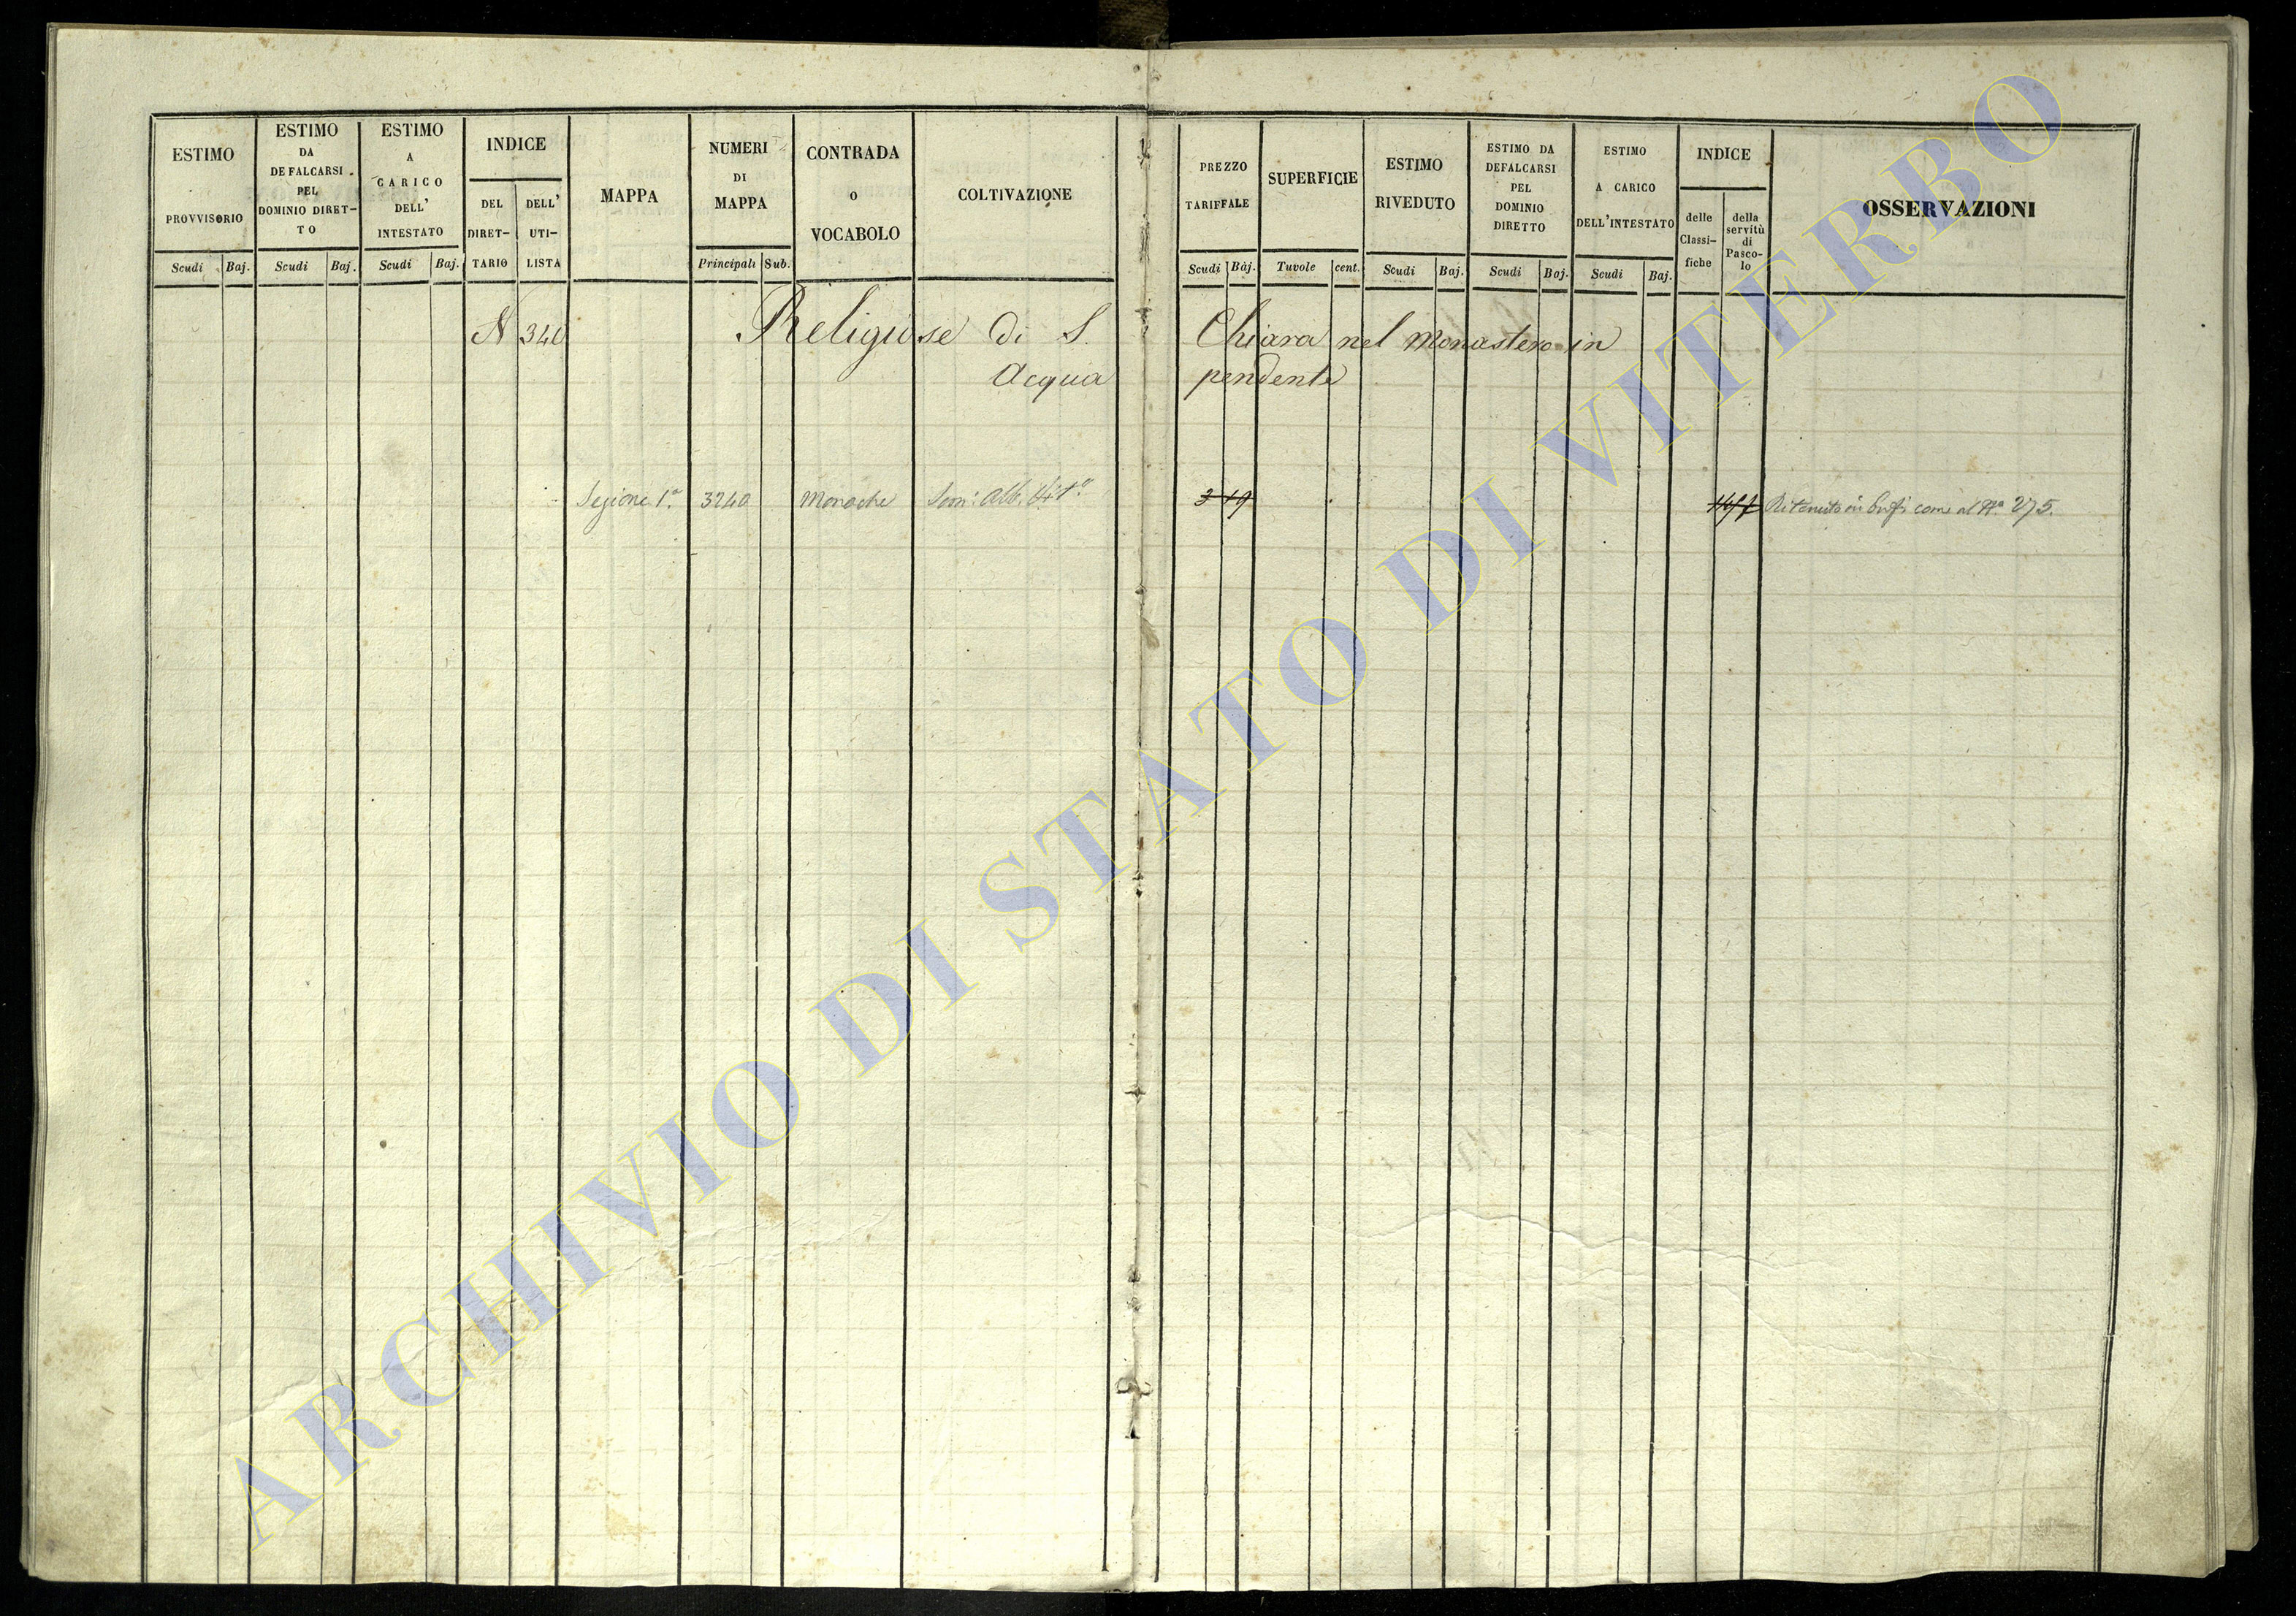 ESTIMO PROVVISORIO
Scudi Baj.
ESTIMO DA DEFALCARSI PEL DOMINIO DIRET-TO
Scudi Baj.
ESTIMO A CARICO DELL' INTESTATO
Scudi Baj.
INDICE
DEL DIRET-TARIO
DELL' UTI-LISTA
MAPPA
NUMERI DI MAPPA
Principali Sub.
CONTRADA O VOCABOLO
COLTIVAZIONE
PREZZO TARIFFALE
Scudi Baj.
SUPERFICIE
Tavole cent.
ESTIMO RIVEDUTO
Scudi Baj.
ESTIMO DA DEFALCARSI PEL DOMINIO DIRETTO
Scudi Baj.
ESTIMO A CARICO DELL'INTESTATO
Scudi Baj.
INDICE
delle Classi-fiche
della servitù di Pasco-lo
OSSERVAZIONI
N 340 Religiose di S. Chiara nel Monastero in
Acqua pendente
Sezione 1ª. 3240 Monache Sem: Alb. 3 19 come al Nº 275.
ARCHIVIO DI STATO DI VITERBO